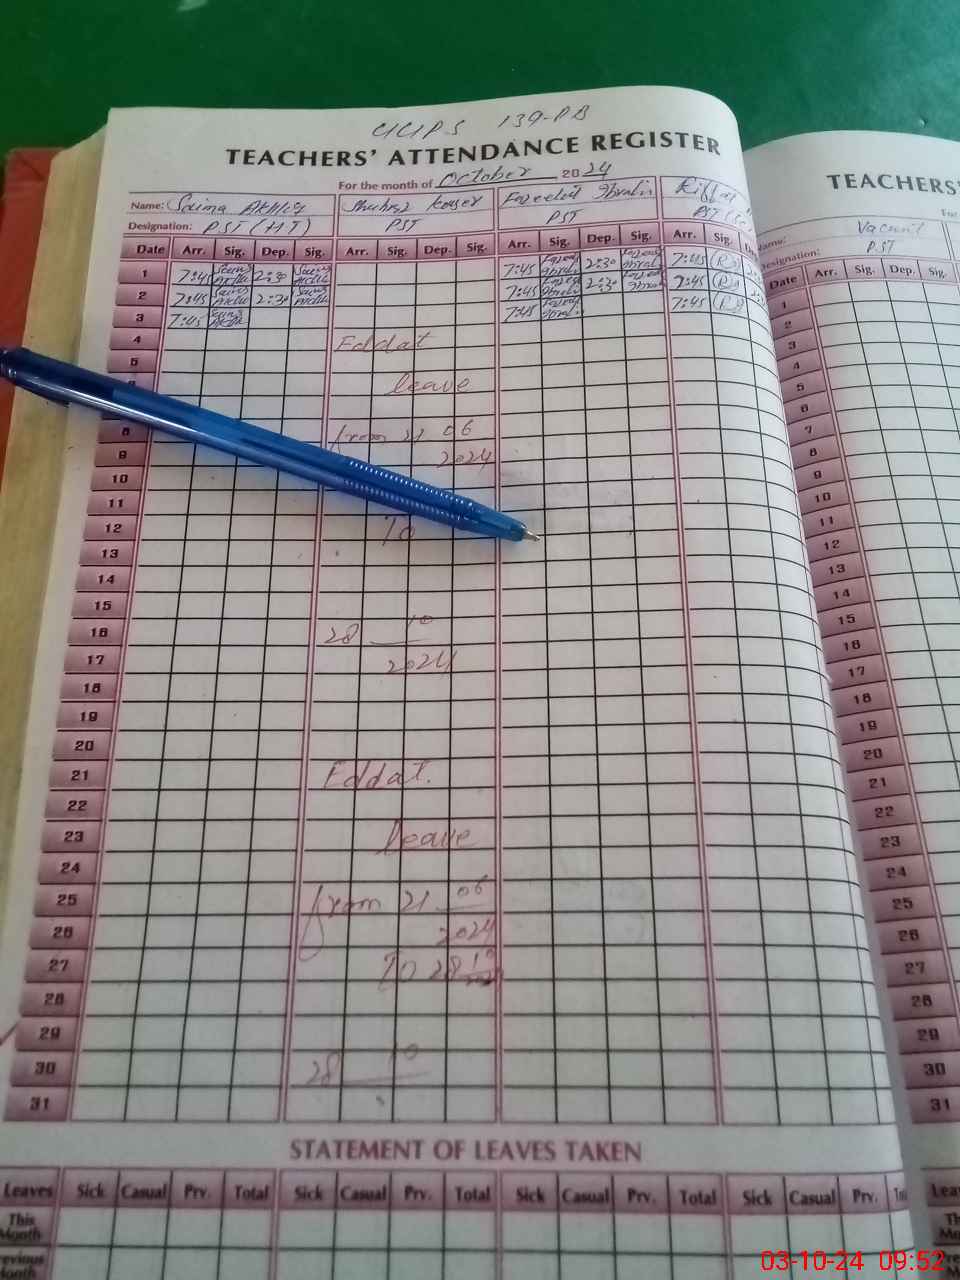 139-PB
TEACHERS' ATTENDANCE REGISTER
For the month of October 2024
Name: Saima Akhtar
Designation: PST (HT)
Kouser
PST
PST
Riffat
PST
Date Arr. Sig. Dep. Sig. Arr. Sig. Dep. Sig. Arr. Sig. Dep. Sig. Arr. Sig.
1 7:45 2:30 7:45 2:30 7:45
2 7:45 2:30 7:45 2:30 7:45
3 7:45 7:45 7:45
4 Eddat
5
leave
8 from 21 06
9 2024
10
11
12 To
13
14
15
16 28 10
17 2024
18
19
20
21 Eddat.
22
23 leave
24
25 from 21 06
26 2024
27 To 28 10
28
29
30 28 10
31
STATEMENT OF LEAVES TAKEN
Leaves Sick Casual Prv. Total Sick Casual Prv. Total Sick Casual Prv. Total Sick Casual Prv.
This Month
Previous Month
TEACHERS'
Name: Vacant
Designation: PST
Date Arr. Sig. Dep. Sig.
1
2
3
4
5
6
7
8
9
10
11
12
13
14
15
16
17
18
19
20
21
22
23
24
25
26
27
28
29
30
31
03-10-24 09:52